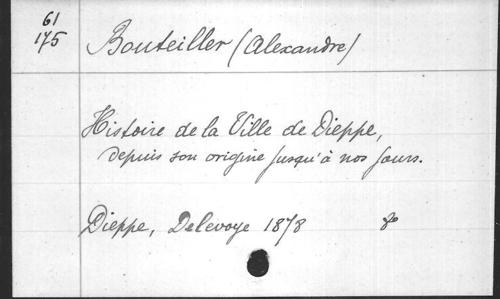 61
175
Bouteiller (Alexandre)
Histoire de la Ville de Dieppe,
depuis son origine jusqu'à nos jours.
Dieppe, Delevoye 1878